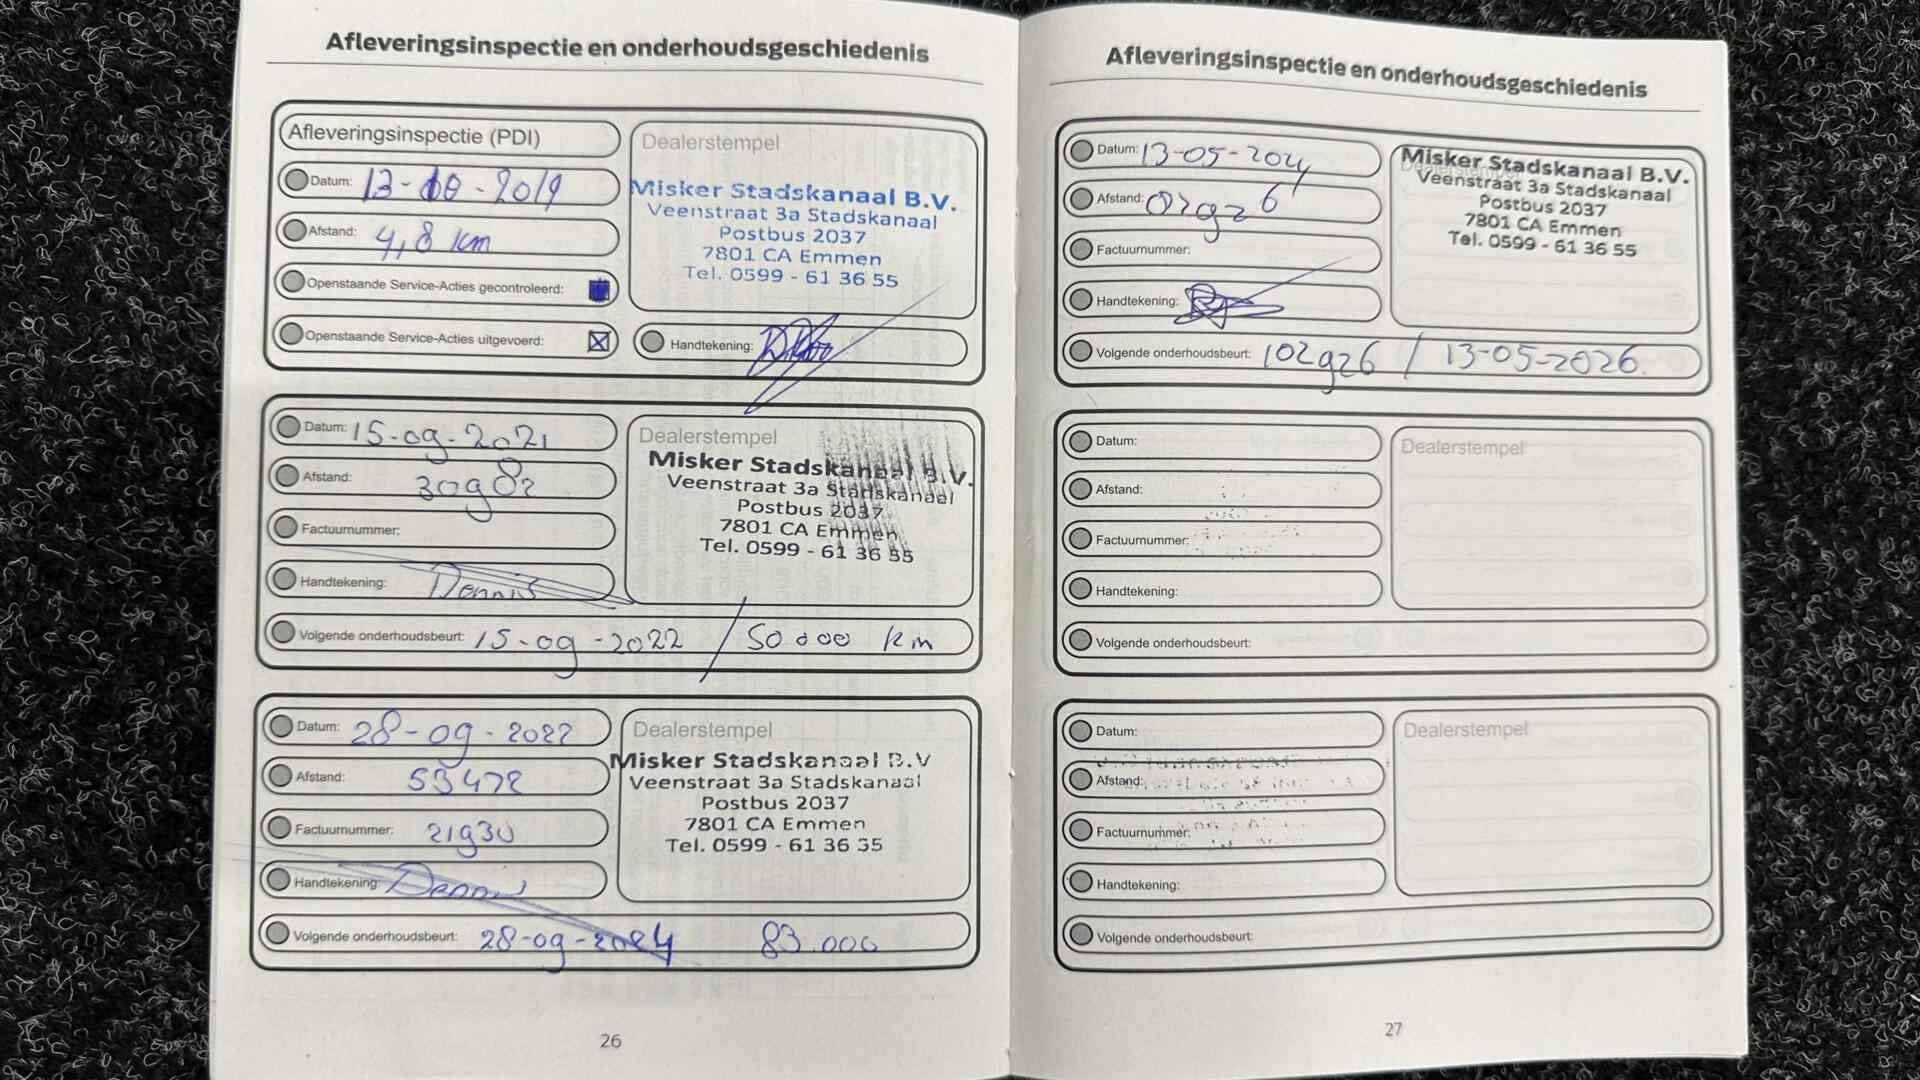 Afleveringsinspectie en onderhoudsgeschiedenis
Afleveringsinspectie (PDI)
Datum: 13-10-2019
Afstand: 4,8 km
Openstaande Service-Acties gecontroleerd:
Openstaande Service-Acties uitgevoerd:
Dealerstempel
Misker Stadskanaal B.V.
Veenstraat 3a Stadskanaal
Postbus 2037
7801 CA Emmen
Tel. 0599 - 61 36 55
Handtekening:
Datum: 15-09-2021
Afstand: 30982
Factuurnummer:
Handtekening: Dennis
Dealerstempel
Misker Stadskanaal B.V.
Veenstraat 3a Stadskanaal
Postbus 2037
7801 CA Emmen
Tel. 0599 - 61 36 55
Volgende onderhoudsbeurt: 15-09-2022 / 50000 km
Datum: 28-09-2022
Afstand: 53472
Factuurnummer: 21930
Handtekening: Dennis
Dealerstempel
Misker Stadskanaal B.V
Veenstraat 3a Stadskanaal
Postbus 2037
7801 CA Emmen
Tel. 0599 - 61 36 55
Volgende onderhoudsbeurt: 28-09-2024 83.000
26
Afleveringsinspectie en onderhoudsgeschiedenis
Datum: 13-05-2024
Afstand:
Factuurnummer:
Handtekening:
Dealerstempel
Misker Stadskanaal B.V.
Veenstraat 3a Stadskanaal
Postbus 2037
7801 CA Emmen
Tel. 0599 - 61 36 55
Volgende onderhoudsbeurt: 102926 / 13-05-2026.
Datum:
Afstand:
Factuurnummer:
Handtekening:
Dealerstempel
Volgende onderhoudsbeurt:
Datum:
Afstand:
Factuurnummer:
Handtekening:
Dealerstempel
Volgende onderhoudsbeurt:
27